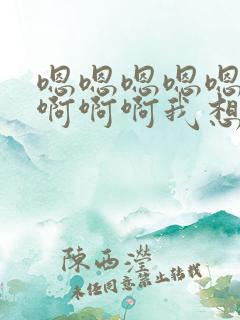 嗯嗯嗯嗯嗯
啊啊啊我想
陳西瀅
未经同意禁止转载